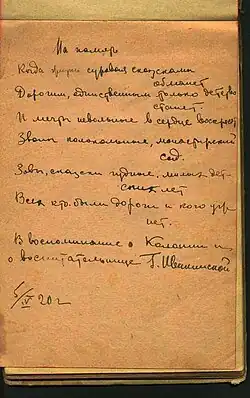 На память
Когда суровая сказками
обманет
Дорогим, единственным только детство
станет.
И мечты невольные в сердце воскресит
Звоны колокольные, монастырский
сад.
Зовы, сказки чудные, милых дет-
ских лет
Всех кто были дороги и кого уж
нет.
В воспоминание о Колонии и
о воспитательнице Г. Ивенинской
5/IV 20 г